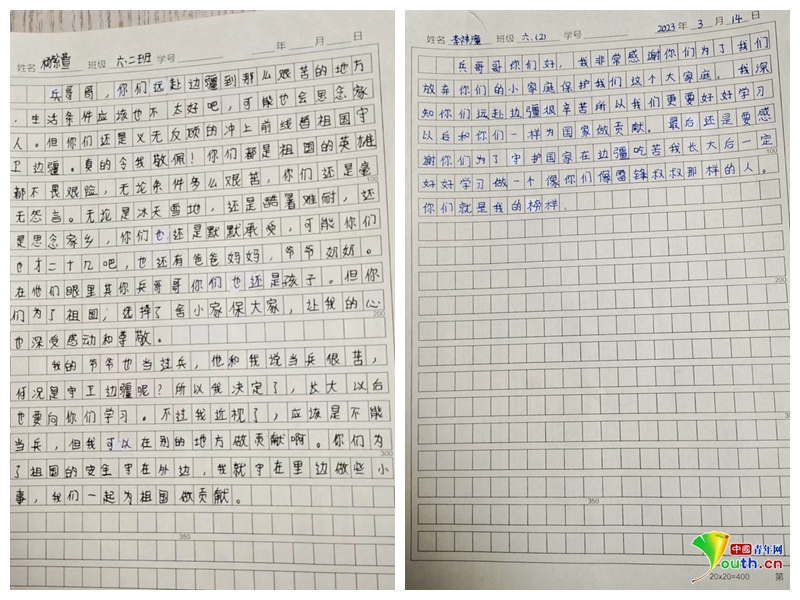 姓名 班级 六.二班 学号 年 月 日
兵哥哥，你们远赴边疆到那么艰苦的地方
，生活条件应该也不太好吧，可能也会思念家
人。但你们还是义无反顾的冲上前线替祖国守
卫边疆。真的令我敬佩！你们都是祖国的英雄
都不畏艰险，无论条件多么艰苦，你们还是毫
100
无怨言。无论是冰天雪地，还是酷暑难耐，还
是思念家乡，你们也还是默默承受，可能你们
也才二十几吧，也还有爸爸妈妈，爷爷奶奶。
在他们眼里其你兵哥哥你们也还是孩子。但你
们为了祖国；选择了舍小家保大家，让我的心
200
也深受感动和尊敬。
我的爷爷也当过兵，他和我说当兵很苦，
何况是守卫边疆呢？所以我决定了，长大以后
也要向你们学习。不过我近视了，应该是不能
当兵，但我可以在别的地方做贡献啊。你们为
300
了祖国的安全守在外边，我就守在里边做些小
事，我们一起为祖国做贡献。
350
姓名 班级 六.(2) 学号 2023 年 3 月 14 日
兵哥哥你们好，我非常感谢你们为了我们
放弃你们的小家庭保护我们这个大家庭。我深
知你们远赴边疆很辛苦所以我们更要好好学习
以后和你们一样为国家做贡献。最后还是要感
谢你们为了守护国家在边疆吃苦我长大后一定
100
好好学习做一个像你们像雷锋叔叔那样的人。
你们就是我的榜样.
200
300
350
20×20=400 第
中國青年网
Youth.cn